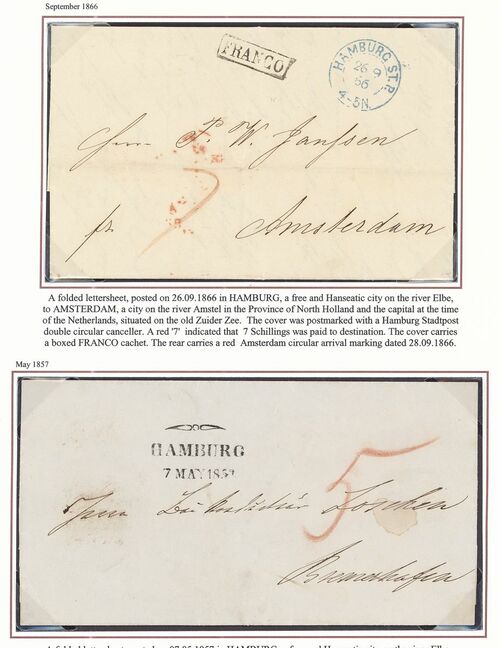 September 1866
FRANCO
HAMBURG ST.P.
26 9
56
4-5N.
Herrn P. W. Janssen
7
pr Amsterdam
A folded lettersheet, posted on 26.09.1866 in HAMBURG, a free and Hanseatic city on the river Elbe,
to AMSTERDAM, a city on the river Amstel in the Province of North Holland and the capital at the time
of the Netherlands, situated on the old Zuider Zee. The cover was postmarked with a Hamburg Stadtpost
double circular canceller. A red '7' indicated that 7 Schillings was paid to destination. The cover carries
a boxed FRANCO cachet. The rear carries a red Amsterdam circular arrival marking dated 28.09.1866.
May 1857
HAMBURG
7 MAY 1857
5
Herrn
Bremerhafen